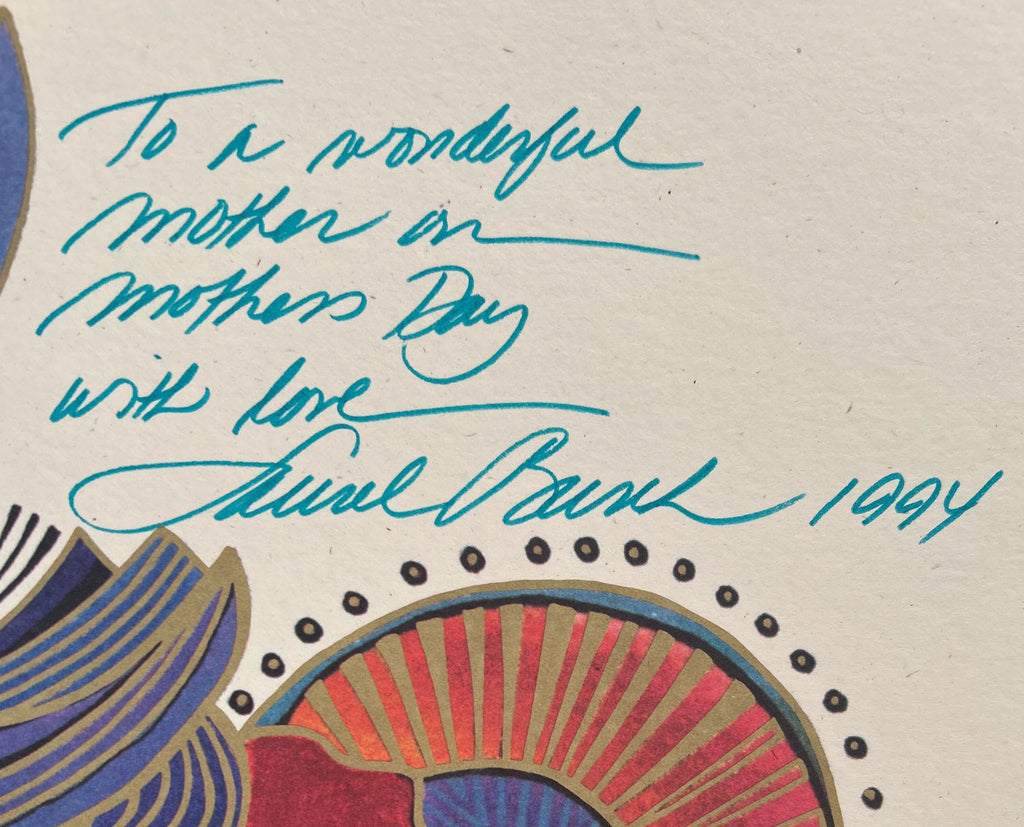 To a wonderful
mother on
mothers Day
with love
Laurel Burch 1994